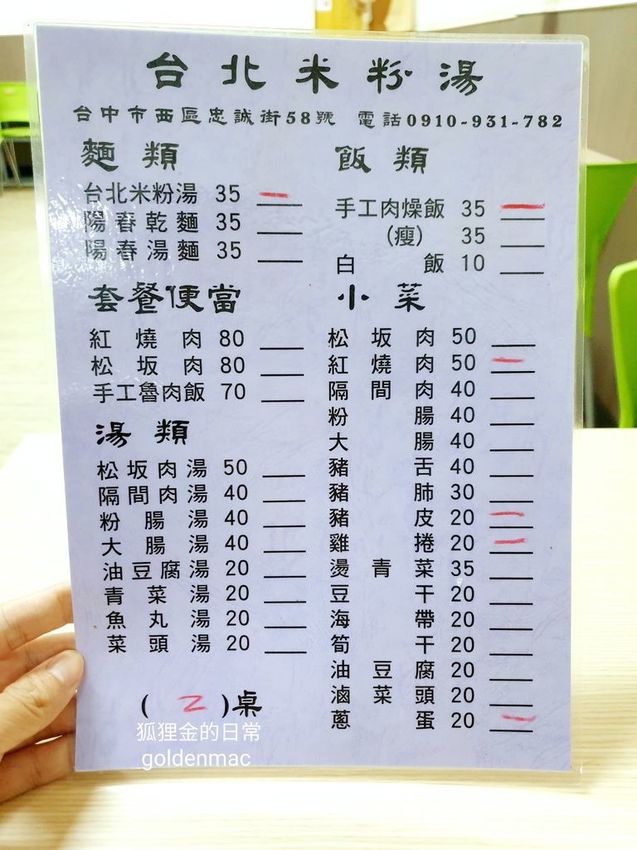 台北米粉湯
台中市西區忠誠街58號 電話0910-931-782
麵類
台北米粉湯 35
陽春乾麵 35
陽春湯麵 35
套餐便當
紅燒肉 80
松坂肉 80
手工魯肉飯 70
湯類
松坂肉湯 50
隔間肉湯 40
粉腸湯 40
大腸湯 40
油豆腐湯 20
青菜湯 20
魚丸湯 20
菜頭湯 20
( 2 )桌
飯類
手工肉燥飯 35
(瘦) 35
白飯 10
小菜
松坂肉 50
紅燒肉 50
隔間肉 40
粉腸 40
大腸 40
豬舌 40
豬肺 30
豬皮 20
雞捲 20
燙青菜 35
豆干 20
海帶 20
筍干 20
油豆腐 20
滷菜頭 20
蔥蛋 20
狐狸金的日常
goldenmac